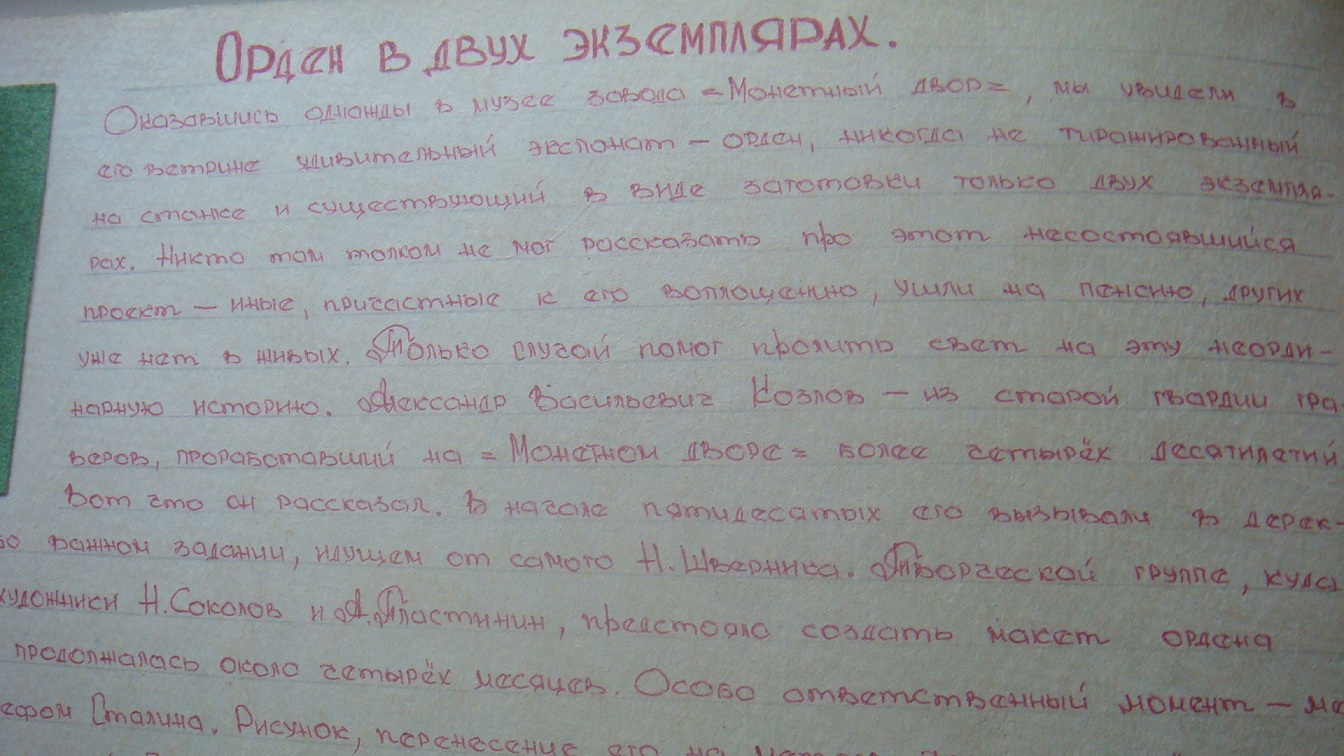 Орден в двух экземплярах.
Оказавшись однажды в музее завода =Монетный двор=, мы увидели в
его витрине удивительный экспонат — орден, никогда не тиражированный
на станке и существующий в виде заготовки только двух экземпля-
рах. Никто там толком не мог рассказать про этот несостоявшийся
проект — иные, причастные к его воплощению, ушли на пенсию, других
уже нет в живых. Только случай помог пролить свет на эту неорди-
нарную историю. Александр Васильевич Козлов — из старой гвардии гра
веров, проработавший на =Монетном дворе= более четырёх десятилетий
Вот что он рассказал. В начале пятидесятых его вызывали в дерек
во важном задании, идущем от самого Н.Шверника. Творческой группе, куда
художники Н.Соколов и А.Пластинин, предстояло создать макет ордена
продолжалась около четырёх месяцев. Особо ответственный момент — ме
ефом Сталина. Рисунок, перенесение его на